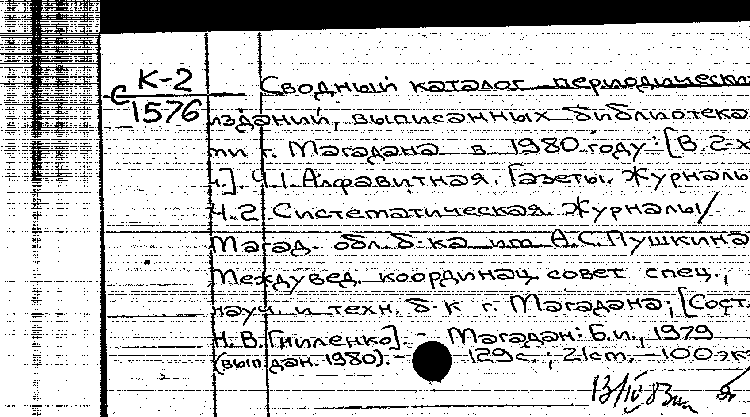 К-2
с 1576
Сводный каталог периодически
изданий, выписанных библиотека
ми г. Магадана в 1980 году: [В 2-х
ч.]. Ч.1. Алфавитная. Газеты. Журналы
Ч.2. Систематическая. Журналы/
Магад. обл. б-ка им А.С.Пушкина
Междувед. координац совет спец.,
науч. и техн. б-к г. Магадана; [Сост.
Н.В.Гниленко]. – Магадан: Б.и., 1979
(вып.дан. 1980). – 129с.; 21см. – 100 эк
13/IV 83